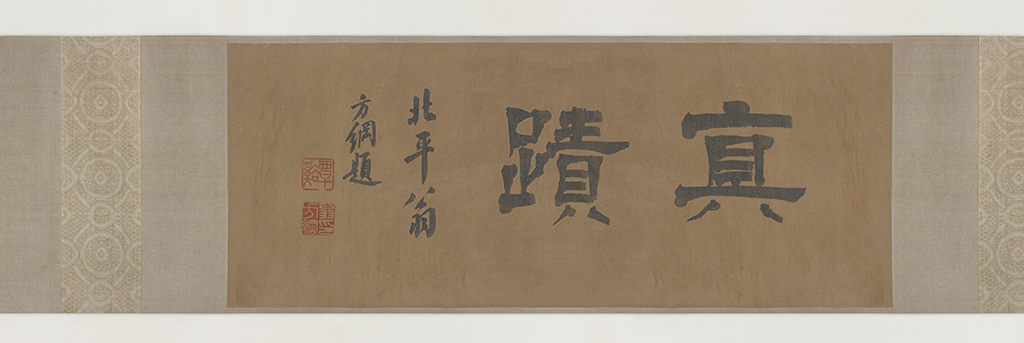 真蹟
北平翁
方綱題
覃谿